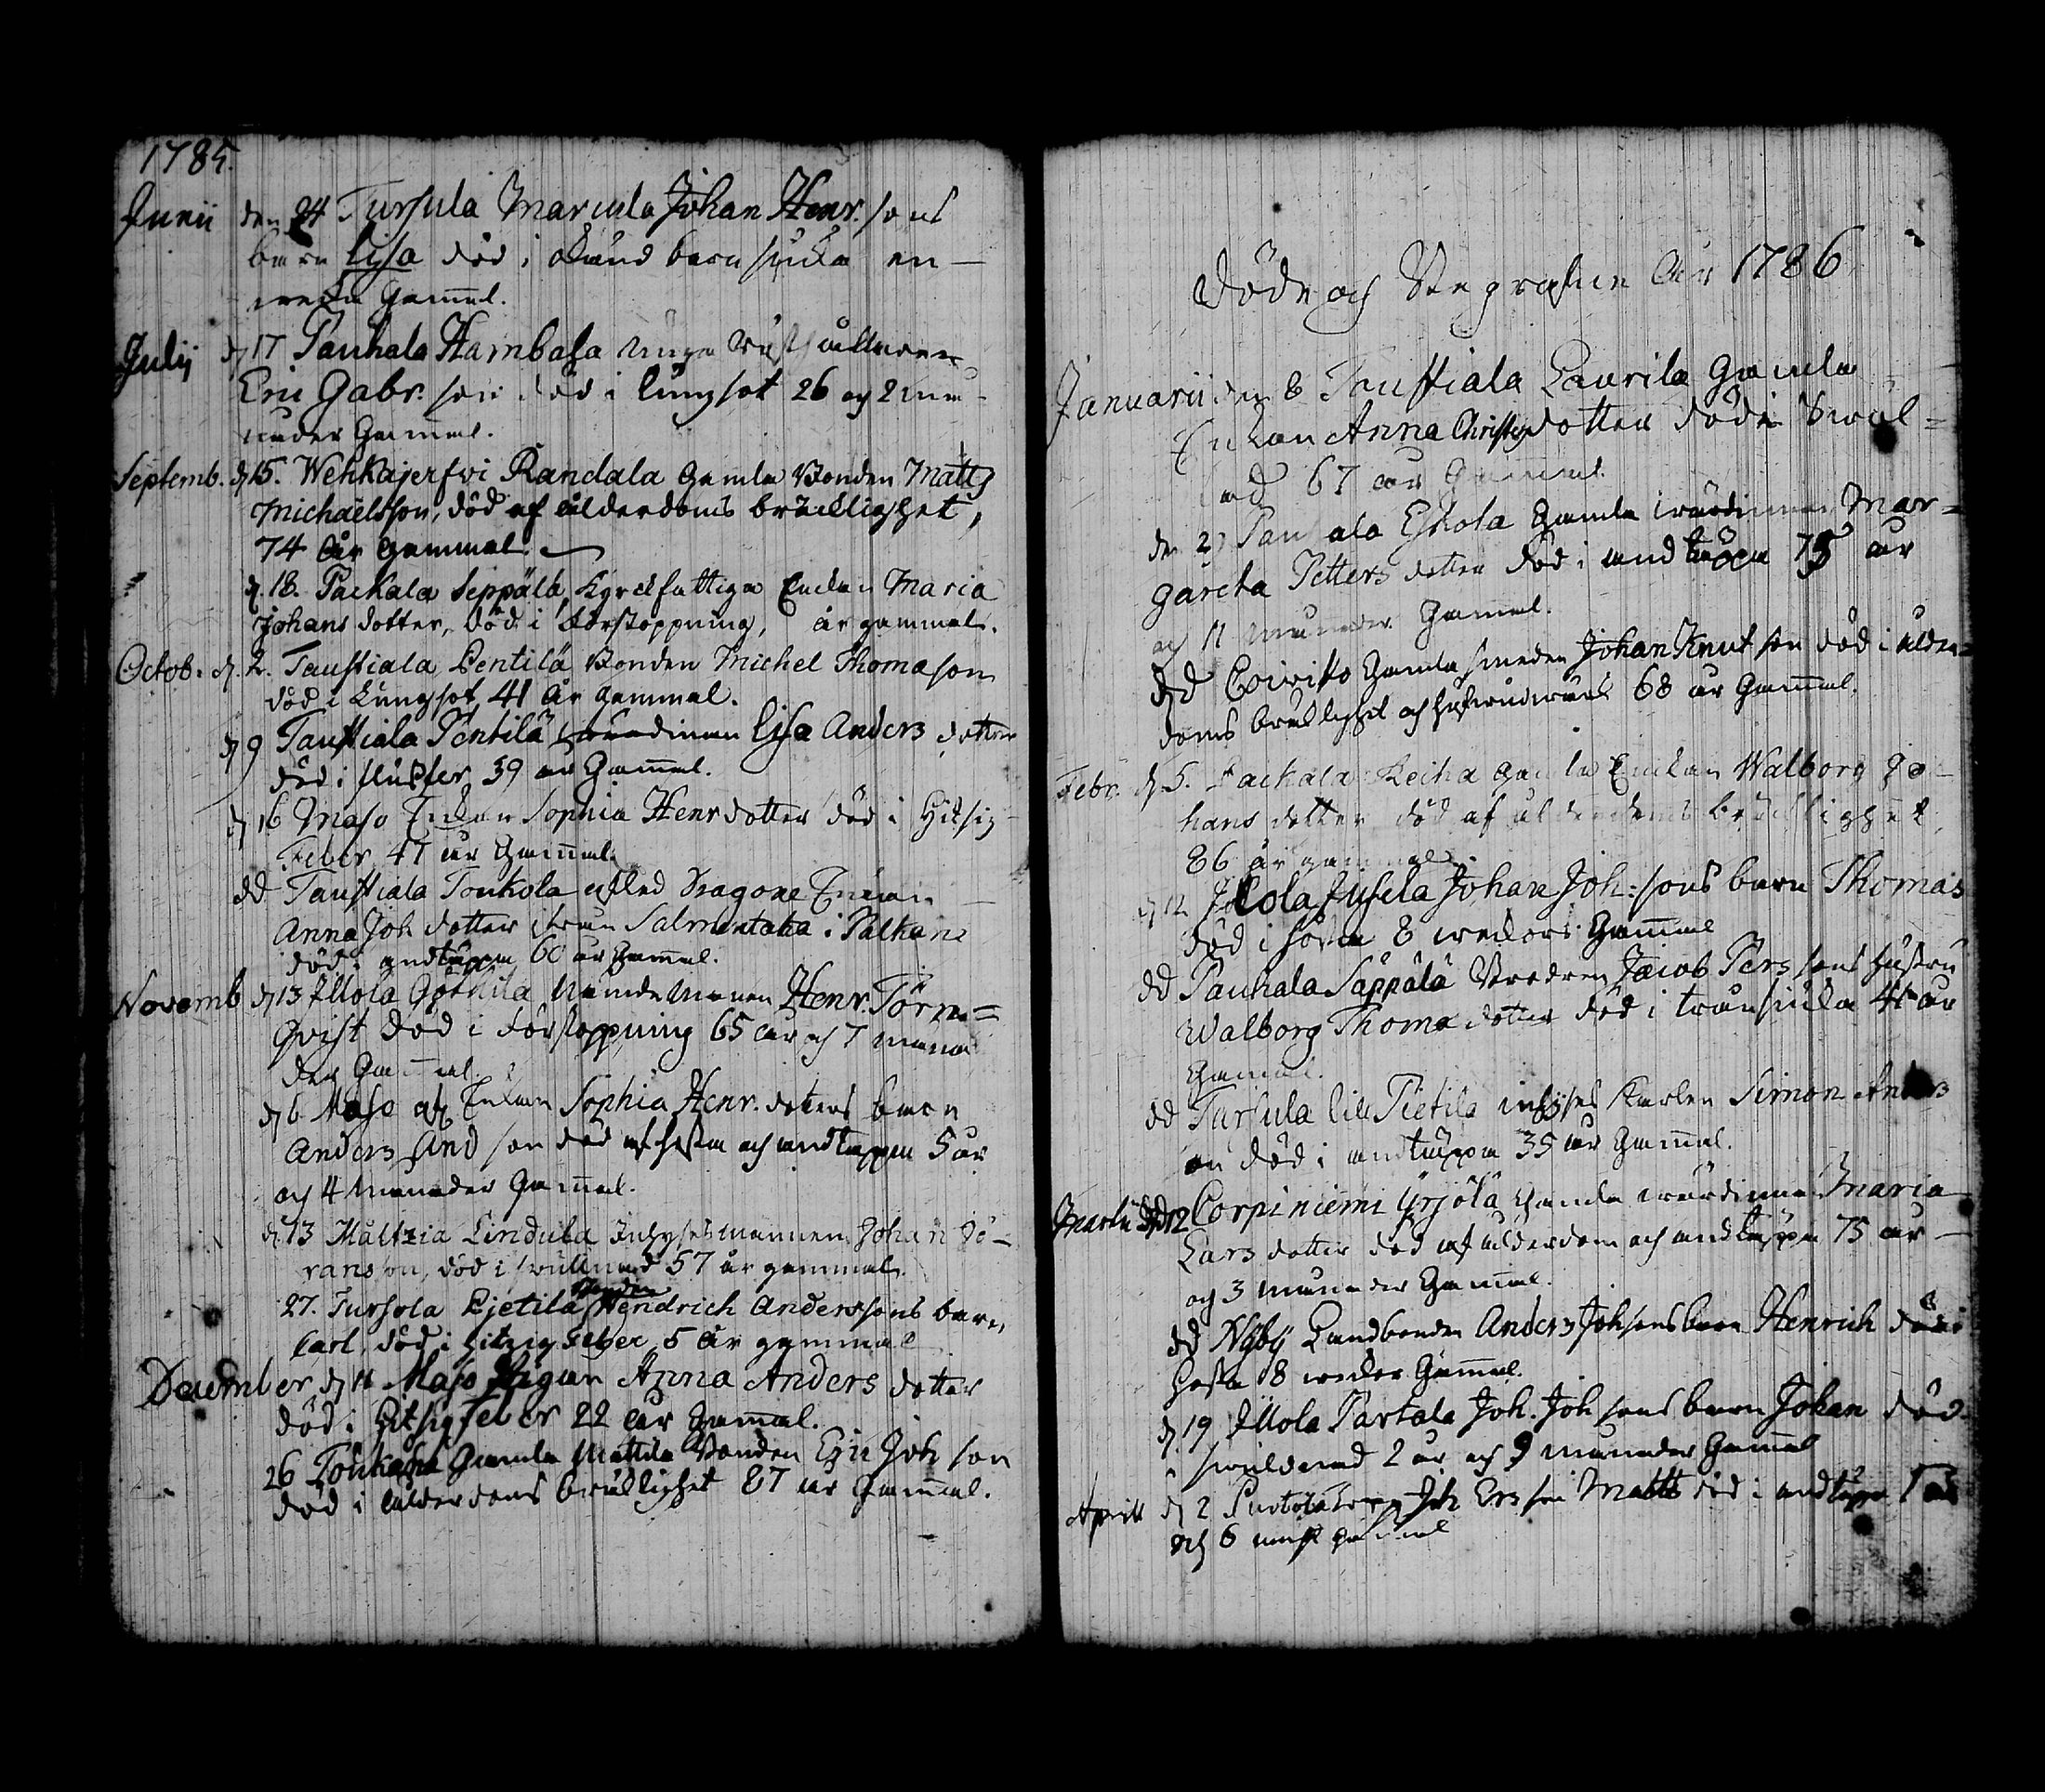 1785.
Junii den 24 Tursula Marcula Johan Henr. sons
barn Lisa död i okänd barnsjuka en
wecka Gam̄al.
Julij d 17 Pauhala Hambasa unga
Eric Gabr. son död i lungsot 26 och 2 må-
nader Gam̄al.
Septemb. d 15. Wehkajerfvi Randala gamla Bonden Matts
Michaelsson, död af ålderdoms bräcklighet,
74 år gammal.
d. 18. Packala Seppälä, kyrckfattiga Enckan Maria
Johans dotter, död i förstoppning, år gammal.
Octob. d. 2. Taustiala Pentilä Bonden Michel Thomason
död i Lungsot 41 år gammal.
d 9 Taustiala Pentilä wärdinnan Lisa Anders dotter
död i 39 år Gam̄al.
d 16 Maso Enkan Sophia Henr dotter död i Hitsig
Feber 47 år Gam̄al.
dd Taustiala Toukola afled Dragone Enkan
Anna Joh dotter ifrån Salmentaka i Palkane
död i andtäppa 60 år Gam̄al.
Novemb d 13 Illola Nämdemannen Henr. Törn=
qvist död i Förstoppning 65 år och 7 måna
der Gam̄al.
d 6 Maso Enkan Sophia Henr. dotters barn
Anders And son död af hosta och andtäppa 5 år
och 4 månader Gam̄al.
d. 13 Mältzia Lindula Inhysesmannen Johan Jö-
ransson, död i swullnad 57 år gammal.
Bonden
27. Tursola Pjetilä Hendrich Anderssons barn,
Carl, död i hitzig feber, 5 år gammal
December d 11 Maso Pigan Anna Anders dotter
död i Hitsig feber 22 år Gam̄al.
26 Gamla Mattila Bonden Eric Joh son
död i ålderdoms bräcklighet 87 år Gam̄al.
Döde och Begrafne Åhr 1786
Januarii den 8 Taustiala Laurila Gamla
Enkan Anna Christ dotter död i Swul=
nad 67 år Gammal
den 2 Pauhala Eskola Gamla wärdinnan Mar=
gareta Petters dotter död i andtäppa 75 år
och 11 månader Gam̄al.
dd Coivisto Gamla smeden Johan Knut son död i ålder=
doms bräcklighet och 68 år Gam̄al.
Febr. d. 5. Packala Keiha gamla Enckan Walborg Jo-
hans dotter död af ålderdoms bräcklighet,
86 år gammal.
d 12 Illola Jusela Johan Joh: sons barn Thomas
död i hosta 8 weckors Gam̄al
dd Pauhala Säppälä Jacob Pers sons hustru
Walborg Thoma dotter död i tränsjuka 41 år
Gam̄al.
dd Tursula lill Pietila inhyses Karlen Simon Anders
on död i andtäppa 35 år Gam̄al.
Martii d 12 Corpiniemi Yrjölä Gamla wärdinnan Maria
Lars dotter död af ålderdom och andtäppa 75 år
och 3 månader Gam̄al.
dd Nyby Landbonden Anders Joh sons barn Henrich död i
hosta 8 weckor Gam̄al.
d. 19 Illola Partala Joh. Joh sons barn Johan död
i swulnad 2 år och 9 månader Gam̄al
Aprill d 2 Joh Ers son Matts död i andtäppa 1 år
och 6 gam̄al